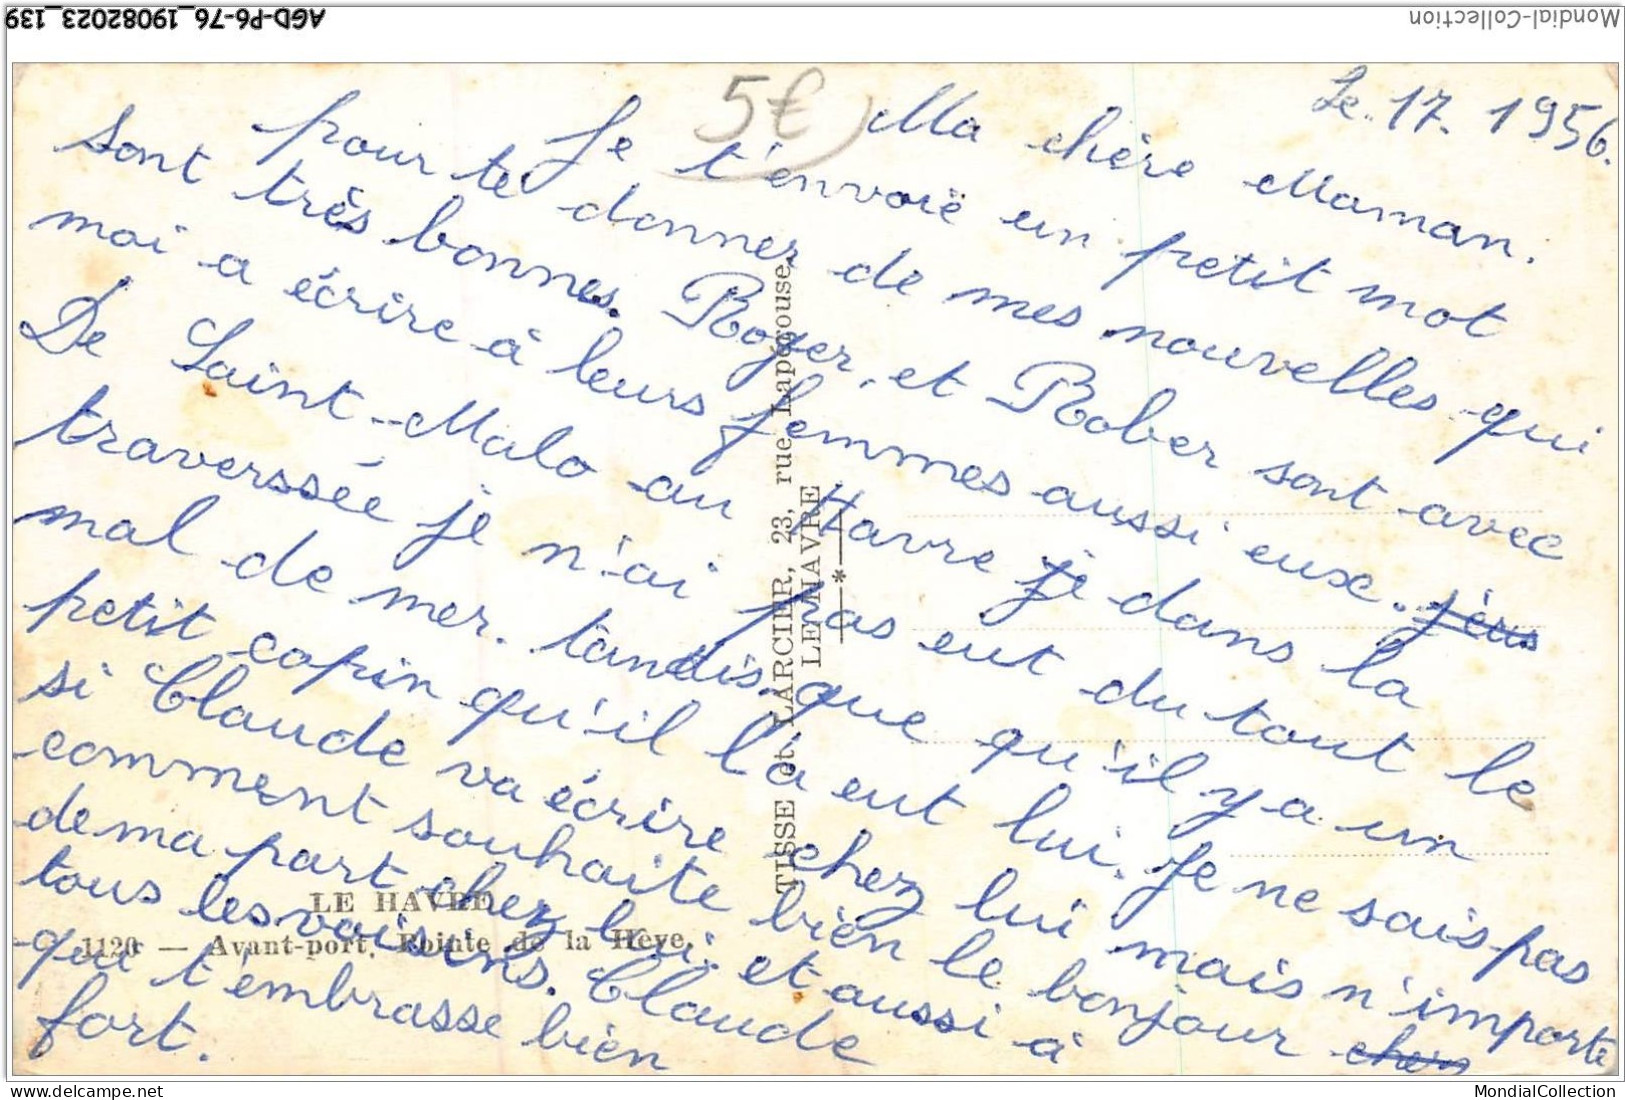 AGD-P6-76_19082023_139
Mondial-Collection
5€
Le 17. 1956.
Ma chère Maman.
Je t'envoië un petit mot
pour te donner de mes nouvelles qui
sont très bonnes. Roger, et Rober sont avec
moi a écrire à leurs femmes aussi eux.
De Saint-Malo au Havre je dans la
traverssée je n'ai pas eut du tout le
mal de mer. tandis que qu'il y a un
petit copin qu'il l'a eut lui. Je ne sais pas
si Claude va écrire chez lui mais n'importe
comment souhaite bien le bonjour chez
de ma part chez lui. et aussi à
tous les voisins. Claude
qui t'embrasse bien
fort.
TISSE et LARCIER, 23, rue Lapérouse,
LE HAVRE
*
LE HAVRE
1120 — Avant-port, Pointe de la Hève.
MondialCollection